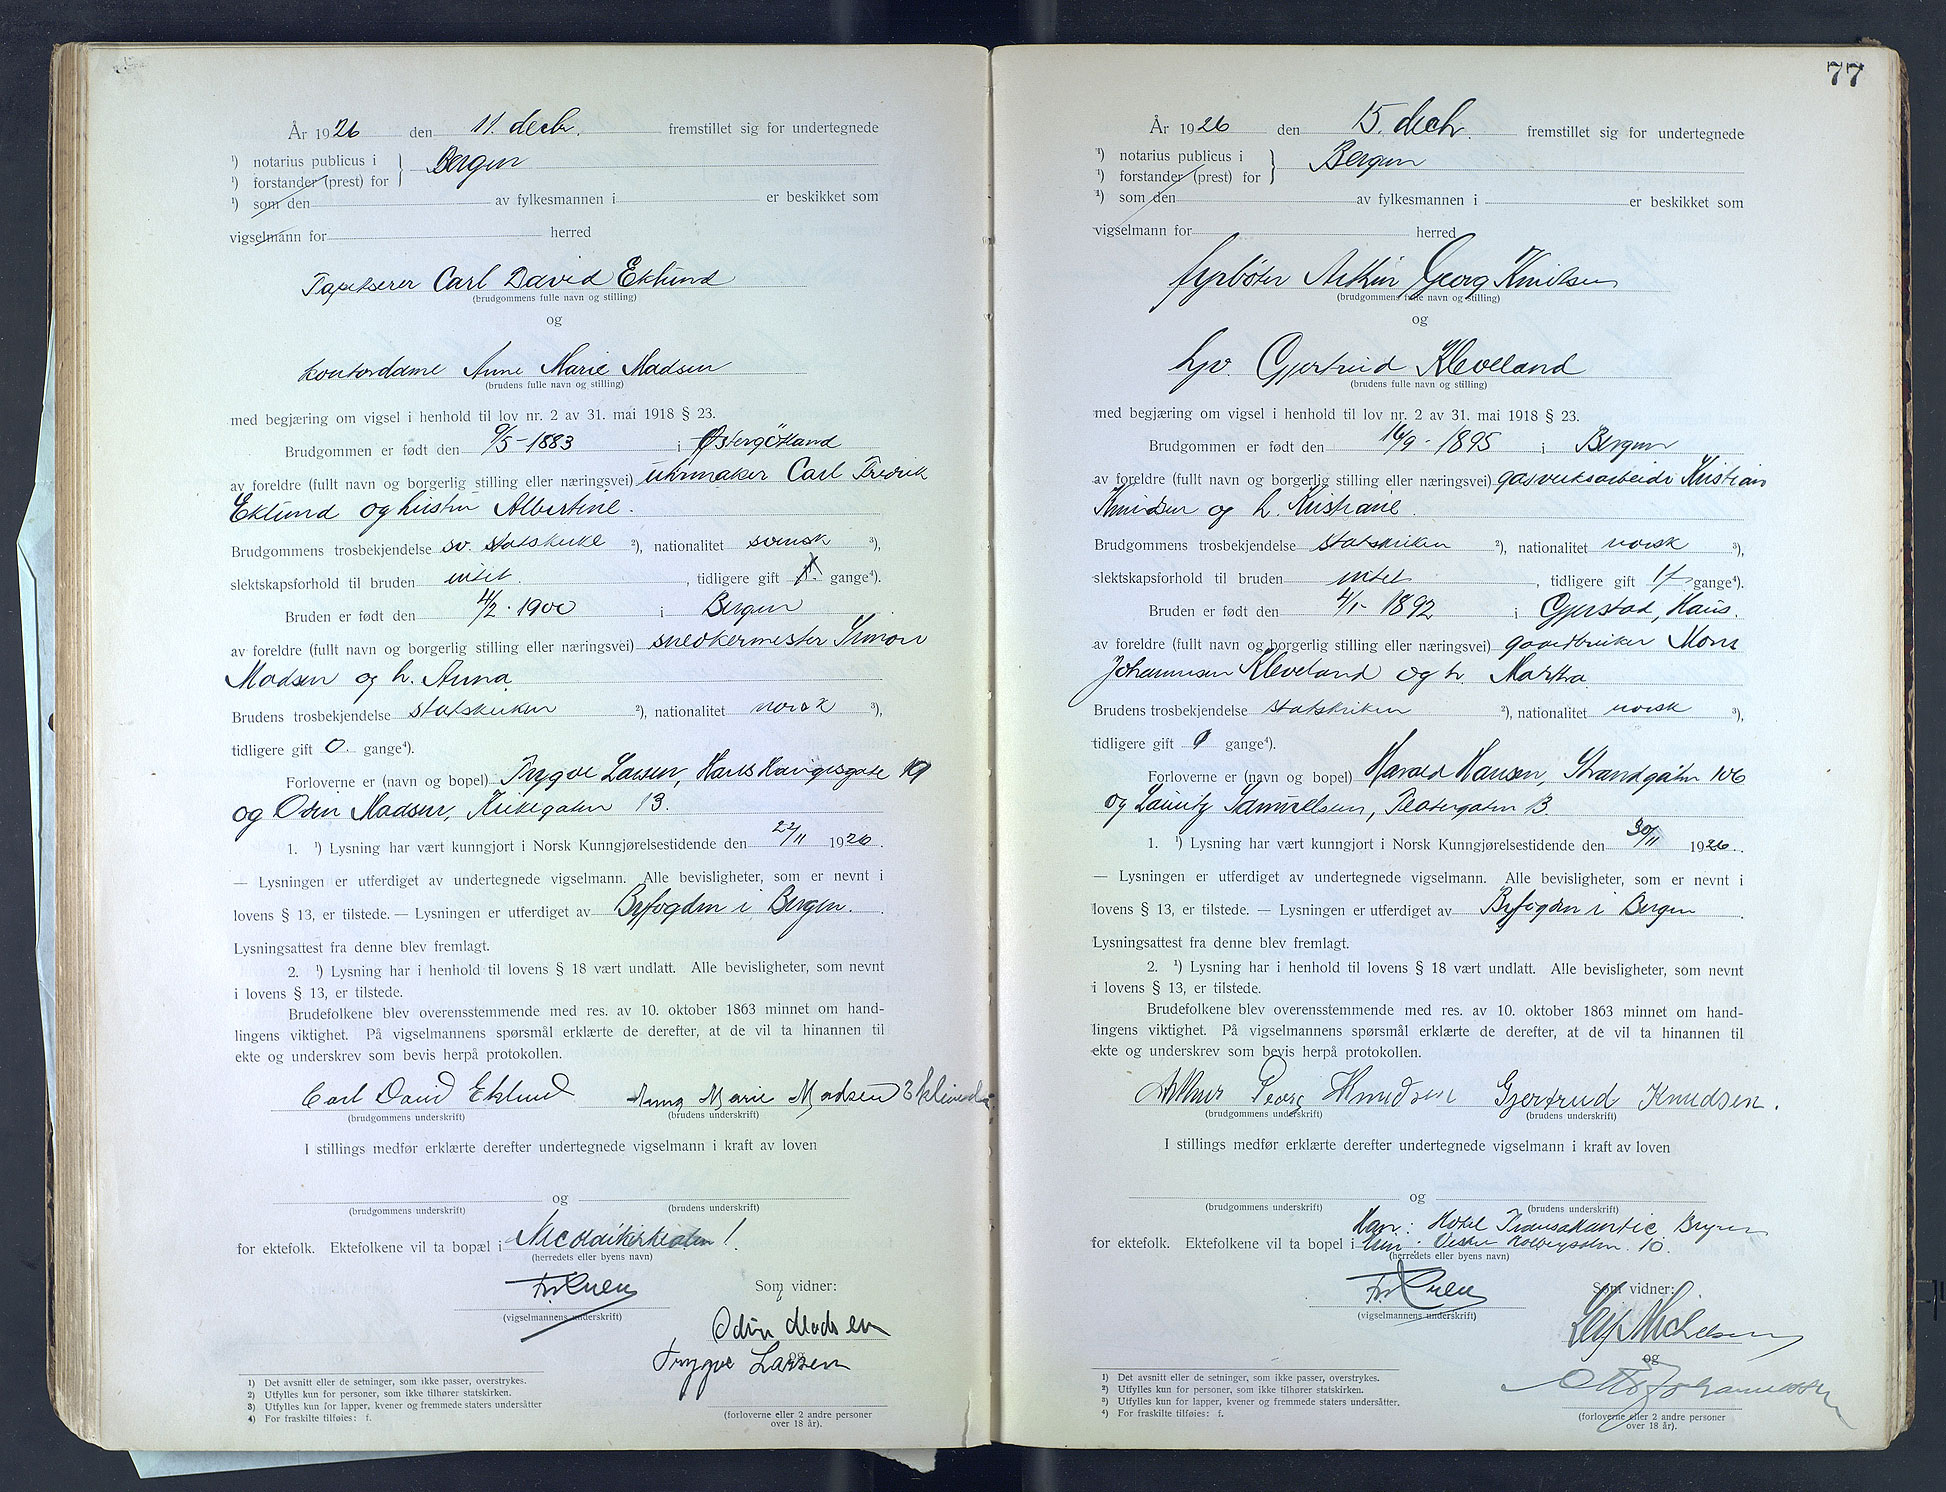 År 1926 den 11. decbr. fremstillet sig for undertegnede
¹) notarius publicus i } Bergen
¹) forstander (prest) for
¹) som den av fylkesmannen i er beskikket som
vigselmann for herred
Tapetserer Carl David Eklund
(brudgommens fulle navn og stilling)
og
kontordame Anne Marie Madsen
(brudens fulle navn og stilling)
med begjæring om vigsel i henhold til lov nr. 2 av 31. mai 1918 § 23.
Brudgommen er født den 9/5-1883 i Østergötland
av foreldre (fullt navn og borgerlig stilling eller næringsvei) uhrmaker Carl Fredrik
Eklund og hustru Albertine.
Brudgommens trosbekjendelse sv. statskirke ²), nationalitet svensk ³),
slektskapsforhold til bruden intet. , tidligere gift gange⁴).
Bruden er født den 4/2-1900 i Bergen
av foreldre (fullt navn og borgerlig stilling eller næringsvei) snedkermester Simon
Madsen og h. Anna
Brudens trosbekjendelse statskirken ²), nationalitet norsk ³),
tidligere gift 0. gange⁴).
Forloverne er (navn og bopel) Trygve Larsen, Hans Haugesgate 19
og Odin Madsen, Kirkegaten 13.
1. ¹) Lysning har vært kunngjort i Norsk Kunngjørelsestidende den 22/11 1926.
— Lysningen er utferdiget av undertegnede vigselmann. Alle bevisligheter, som er nevnt i
lovens § 13, er tilstede. — Lysningen er utferdiget av Byfogden i Bergen.
Lysningsattest fra denne blev fremlagt.
2. ¹) Lysning har i henhold til lovens § 18 vært undlatt. Alle bevisligheter, som nevnt
i lovens § 13, er tilstede.
Brudefolkene blev overensstemmende med res. av 10. oktober 1863 minnet om hand-
lingens viktighet. På vigselmannens spørsmål erklærte de derefter, at de vil ta hinannen til
ekte og underskrev som bevis herpå protokollen.
Carl David Eklund Anna Marie Madsen Eklund
(brudgommens underskrift) (brudens underskrift)
I stillings medfør erklærte derefter undertegnede vigselmann i kraft av loven
og
(brudgommens underskrift) (brudens underskrift)
for ektefolk. Ektefolkene vil ta bopæl i 1.
(herredets eller byens navn)
Som vidner:
(vigselmannens underskrift)
Odin Madsen
og
Trygve Larsen
1) Det avsnitt eller de setninger, som ikke passer, overstrykes.
2) Utfylles kun for personer, som ikke tilhører statskirken.
3) Utfylles kun for lapper, kvener og fremmede staters undersåtter
4) For fraskilte tilføies: f.
(forloverne eller 2 andre personer
over 18 år).
77
År 1926 den 15. decbr. fremstillet sig for undertegnede
¹) notarius publicus i } Bergen
¹) forstander (prest) for
¹) som den av fylkesmannen i er beskikket som
vigselmann for herred
fyrbøter Arthur Georg Knudsen
(brudgommens fulle navn og stilling)
og
Gjertrud Kleveland
(brudens fulle navn og stilling)
med begjæring om vigsel i henhold til lov nr. 2 av 31. mai 1918 § 23.
Brudgommen er født den 16/9-1895 i Bergen
av foreldre (fullt navn og borgerlig stilling eller næringsvei) gasverksarbeider Kristian
Knudsen og h. Kristiane.
Brudgommens trosbekjendelse statskirken ²), nationalitet norsk ³),
slektskapsforhold til bruden intet , tidligere gift 1 f gange⁴).
Bruden er født den 4/1-1892 i Gjerstad, Haus.
av foreldre (fullt navn og borgerlig stilling eller næringsvei) gaardbruker Mons
Johannesen Kleveland og h. Martha
Brudens trosbekjendelse statskirken ²), nationalitet norsk ³),
tidligere gift 0 gange⁴).
Forloverne er (navn og bopel) Harald Hansen, Strandgaten 106
og Lauritz Samuelsen, Teatergaten 13.
1. ¹) Lysning har vært kunngjort i Norsk Kunngjørelsestidende den 30/11 1926.
— Lysningen er utferdiget av undertegnede vigselmann. Alle bevisligheter, som er nevnt i
lovens § 13, er tilstede. — Lysningen er utferdiget av Byfogden i Bergen.
Lysningsattest fra denne blev fremlagt.
2. ¹) Lysning har i henhold til lovens § 18 vært undlatt. Alle bevisligheter, som nevnt
i lovens § 13, er tilstede.
Brudefolkene blev overensstemmende med res. av 10. oktober 1863 minnet om hand-
lingens viktighet. På vigselmannens spørsmål erklærte de derefter, at de vil ta hinannen til
ekte og underskrev som bevis herpå protokollen.
Arthur Georg Knudsen Gjertrud Knudsen.
(brudgommens underskrift) (brudens underskrift)
I stillings medfør erklærte derefter undertegnede vigselmann i kraft av loven
og
(brudgommens underskrift) (brudens underskrift)
Han: Hotel Transatlantic, Bergen
for ektefolk. Ektefolkene vil ta bopel i Hun: Vestre 10.
(herredets eller byens navn)
Som vidner:
(vigselmannens underskrift)
Leif Michelsen
og
Otto Johannessen
1) Det avsnitt eller de setninger, som ikke passer, overstrykes.
2) Utfylles kun for personer, som ikke tilhører statskirken.
3) Utfylles kun for lapper, kvener og fremmede staters undersåtter.
4) For fraskilte tilføies: f.
(forloverne eller 2 andre personer
over 18 år).